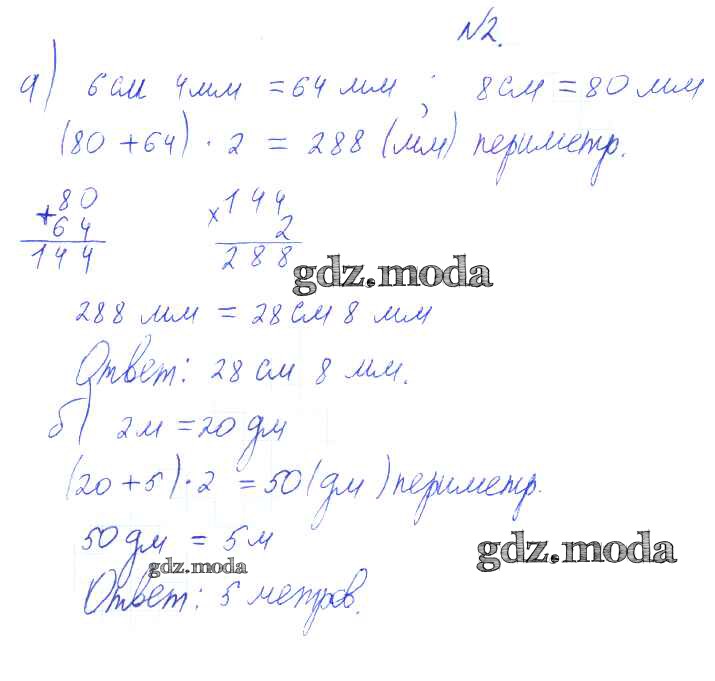 №2.
а) 6см 4мм = 64 мм ; 8см = 80 мм
(80 + 64) · 2 = 288 (мм) периметр.
+80 ×144
64 2
144 288
gdz.moda
288 мм = 28см 8 мм
Ответ: 28 см 8 мм.
б) 2м = 20 дм
(20 + 5) · 2 = 50 (дм) периметр.
50 дм = 5м
gdz.moda
gdz.moda
Ответ: 5 метров.